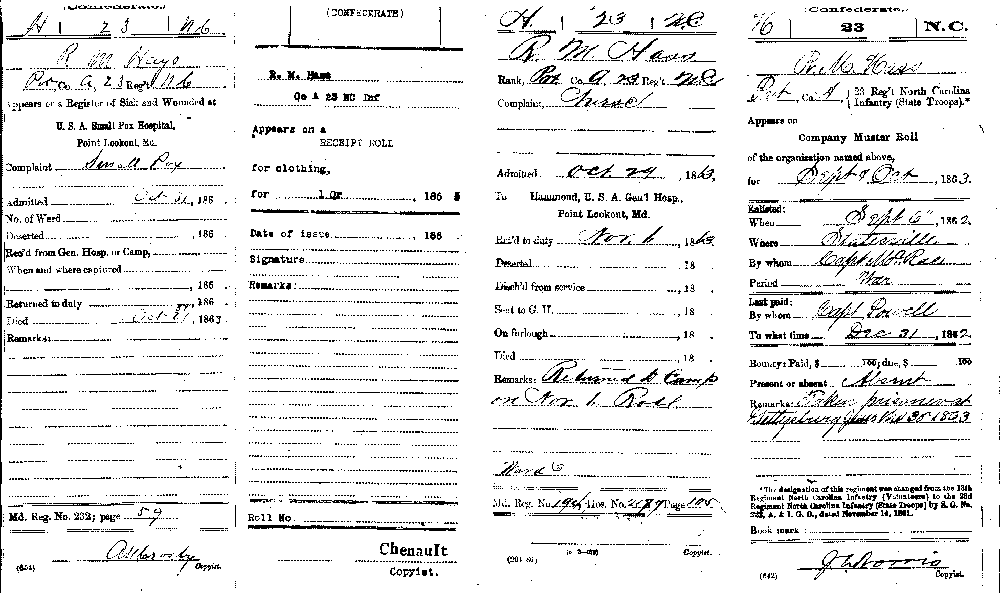 Confederate.
H | 23 | N.C.
R M Hays
Pvt Co. A, 23 Reg't N C
Appears on a Register of Sick and Wounded at
U. S. A. Small Pox Hospital,
Point Lookout, Md.
Complaint Small Pox
Admitted Oct 21, 186
No. of Ward
Deserted , 186
Rec'd from Gen. Hosp. or Camp,
When and where captured
, 186 .
Returned to duty , 186
Died Oct 27, 1863
Remarks:
Md. Reg. No. 232; page 59
(634) Copyist.
(CONFEDERATE)
R. M. Hass
Co A 23 NC Inf
Appears on a
RECEIPT ROLL
for clothing,
for 1 Qr , 186
Date of issue , 186
Signature
Remarks:
Roll No.
Chenault
Copyist.
H. | 23 | N.C.
R. M. Hass
Rank, Pvt Co. A 23 Reg't N.C.
Complaint,
Admitted Oct 29 , 1863.
To Hammond, U. S. A. Gen'l Hosp.,
Point Lookout, Md.
Ret'd to duty Nov. 1 , 1863
Deserted , 18 .
Disch'd from service , 18 .
Sent to G. H. , 18 .
On furlough , 18 .
Died , 18 .
Remarks: Returned to Camp
on Nov 1.
Ward 6
Md. Reg. No. ; Hos. No. ; Page 105
Copyist.
Confederate.
H | 23 | N.C.
R. M. Hass
Pvt, Co. A, 23 Reg't North Carolina
Infantry (State Troops).*
Appears on
Company Muster Roll
of the organization named above,
for Sept & Oct , 1863.
Enlisted:
When Sept 6 , 1862.
Where Statesville
By whom Capt McRae
Period War
Last paid:
By whom Capt Powell
To what time Dec 31 , 1862.
Bounty: Paid, $ 100; due, $ 100
Present or absent Absent
Remarks: Taken prisoner at
Gettysburg 1863
*The designation of this regiment was changed from the 13th
Regiment North Carolina Infantry (Volunteers) to the 23d
Regiment North Carolina Infantry (State Troops) by S. O. No.
222, A. & I. G. O., dated November 14, 1861.
Book mark:
(642) Copyist.